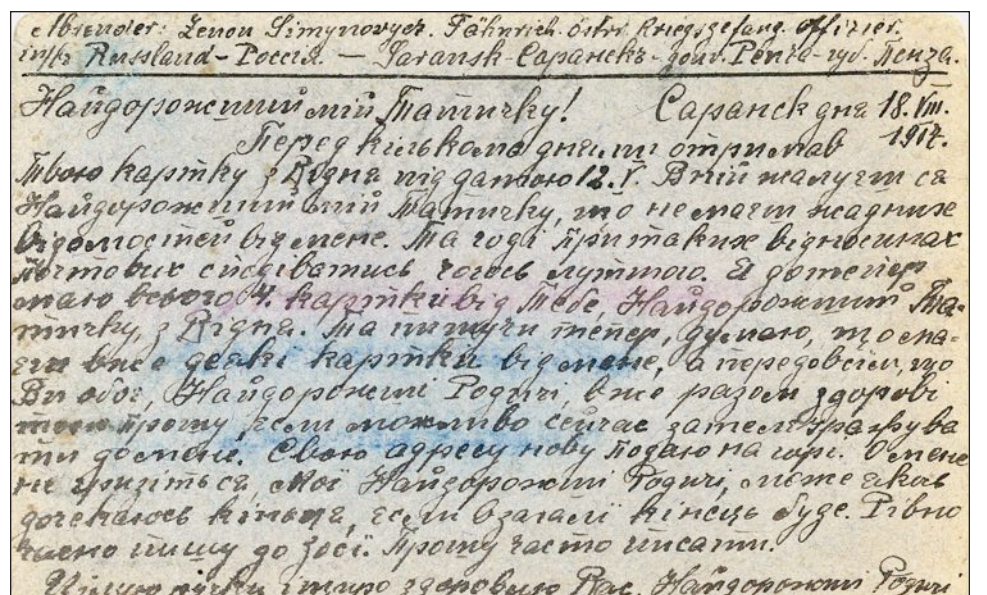 Absender: Zenon Simynovycz. Fähnrich. östr. Kriegsgefang. Offizier.
in Russland – Россія. — Saransk - Саранскъ - gouv. Penza - губ. Пенза.
Найдорожший мій Татичку! Саранск дня 18. VIII.
Перед кількома днями отримав 1917.
Твою картку з Відня під датою 12. V. В ній жалуєш ся
Найдорожший мій Татичку, що не маєш жадних
відомостей від мене. Та годі при таких відносинах
почтових сподіватись чогось лучшого. Я дотепер
маю всього 4. картки від Тебе, Найдорожший Та-
тичку, з Відня. Та пишучи тепер, думаю, що ма-
єш вже деякі картки від мене, а передовсім, що
Ви обоє, Найдорожші Родичі, вже разом здорові
прошу, если можливо сейчас зателєґрафува
ти до мене. Свою адресу нову подаю на горі. О мене
не гризіть ся, Мої Найдорожші Родичі, може якось
дочекаюсь кінця, если взагалі кінець буде. Рівно
часно пишу до Зосі. Прошу часто писати.
Цілую ручки здоровлю Вас, Найдорожші Родичі